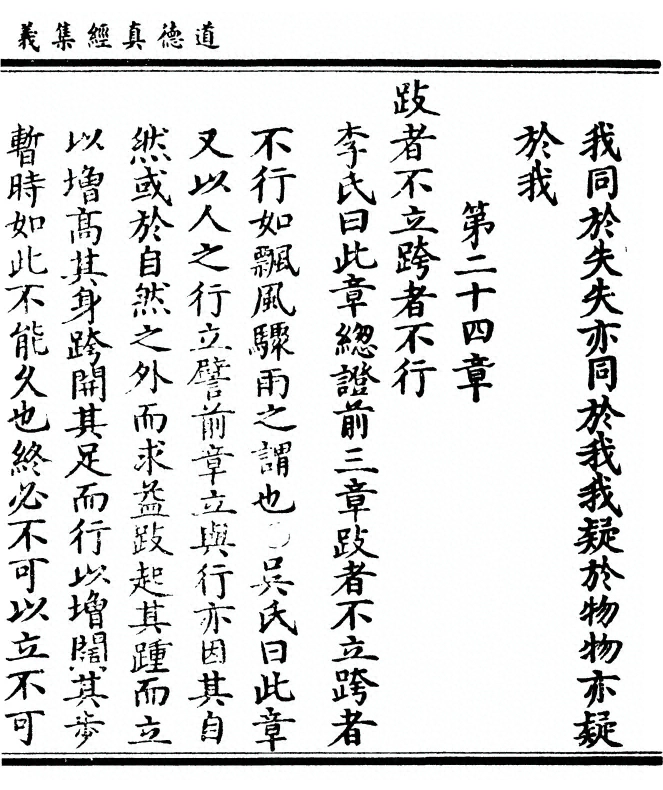 道德真經集義
我同於失失亦同於我我疑於物物亦疑
於我
第二十四章
跂者不立跨者不行
李氏曰此章緫證前三章跂者不立跨者
不行如飄風驟雨之謂也○吳氏曰此章
又以人之行立譬前章立與行亦因其自
然或於自然之外而求益跂起其踵而立
以增高其身跨開其足而行以增闊其步
暫時如此不能久也終必不可以立不可